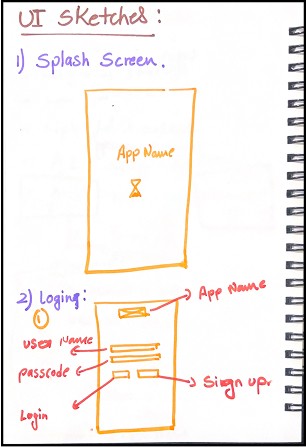 UI Sketches:
1) Splash Screen.
App Name
2) Loging:
1
App Name
User Name
passcode
Sign up.
Login